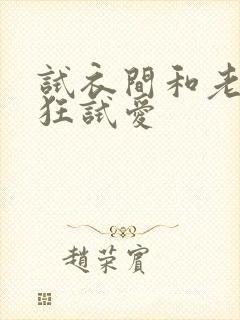 試衣間和老
狂試愛
趙荣賓